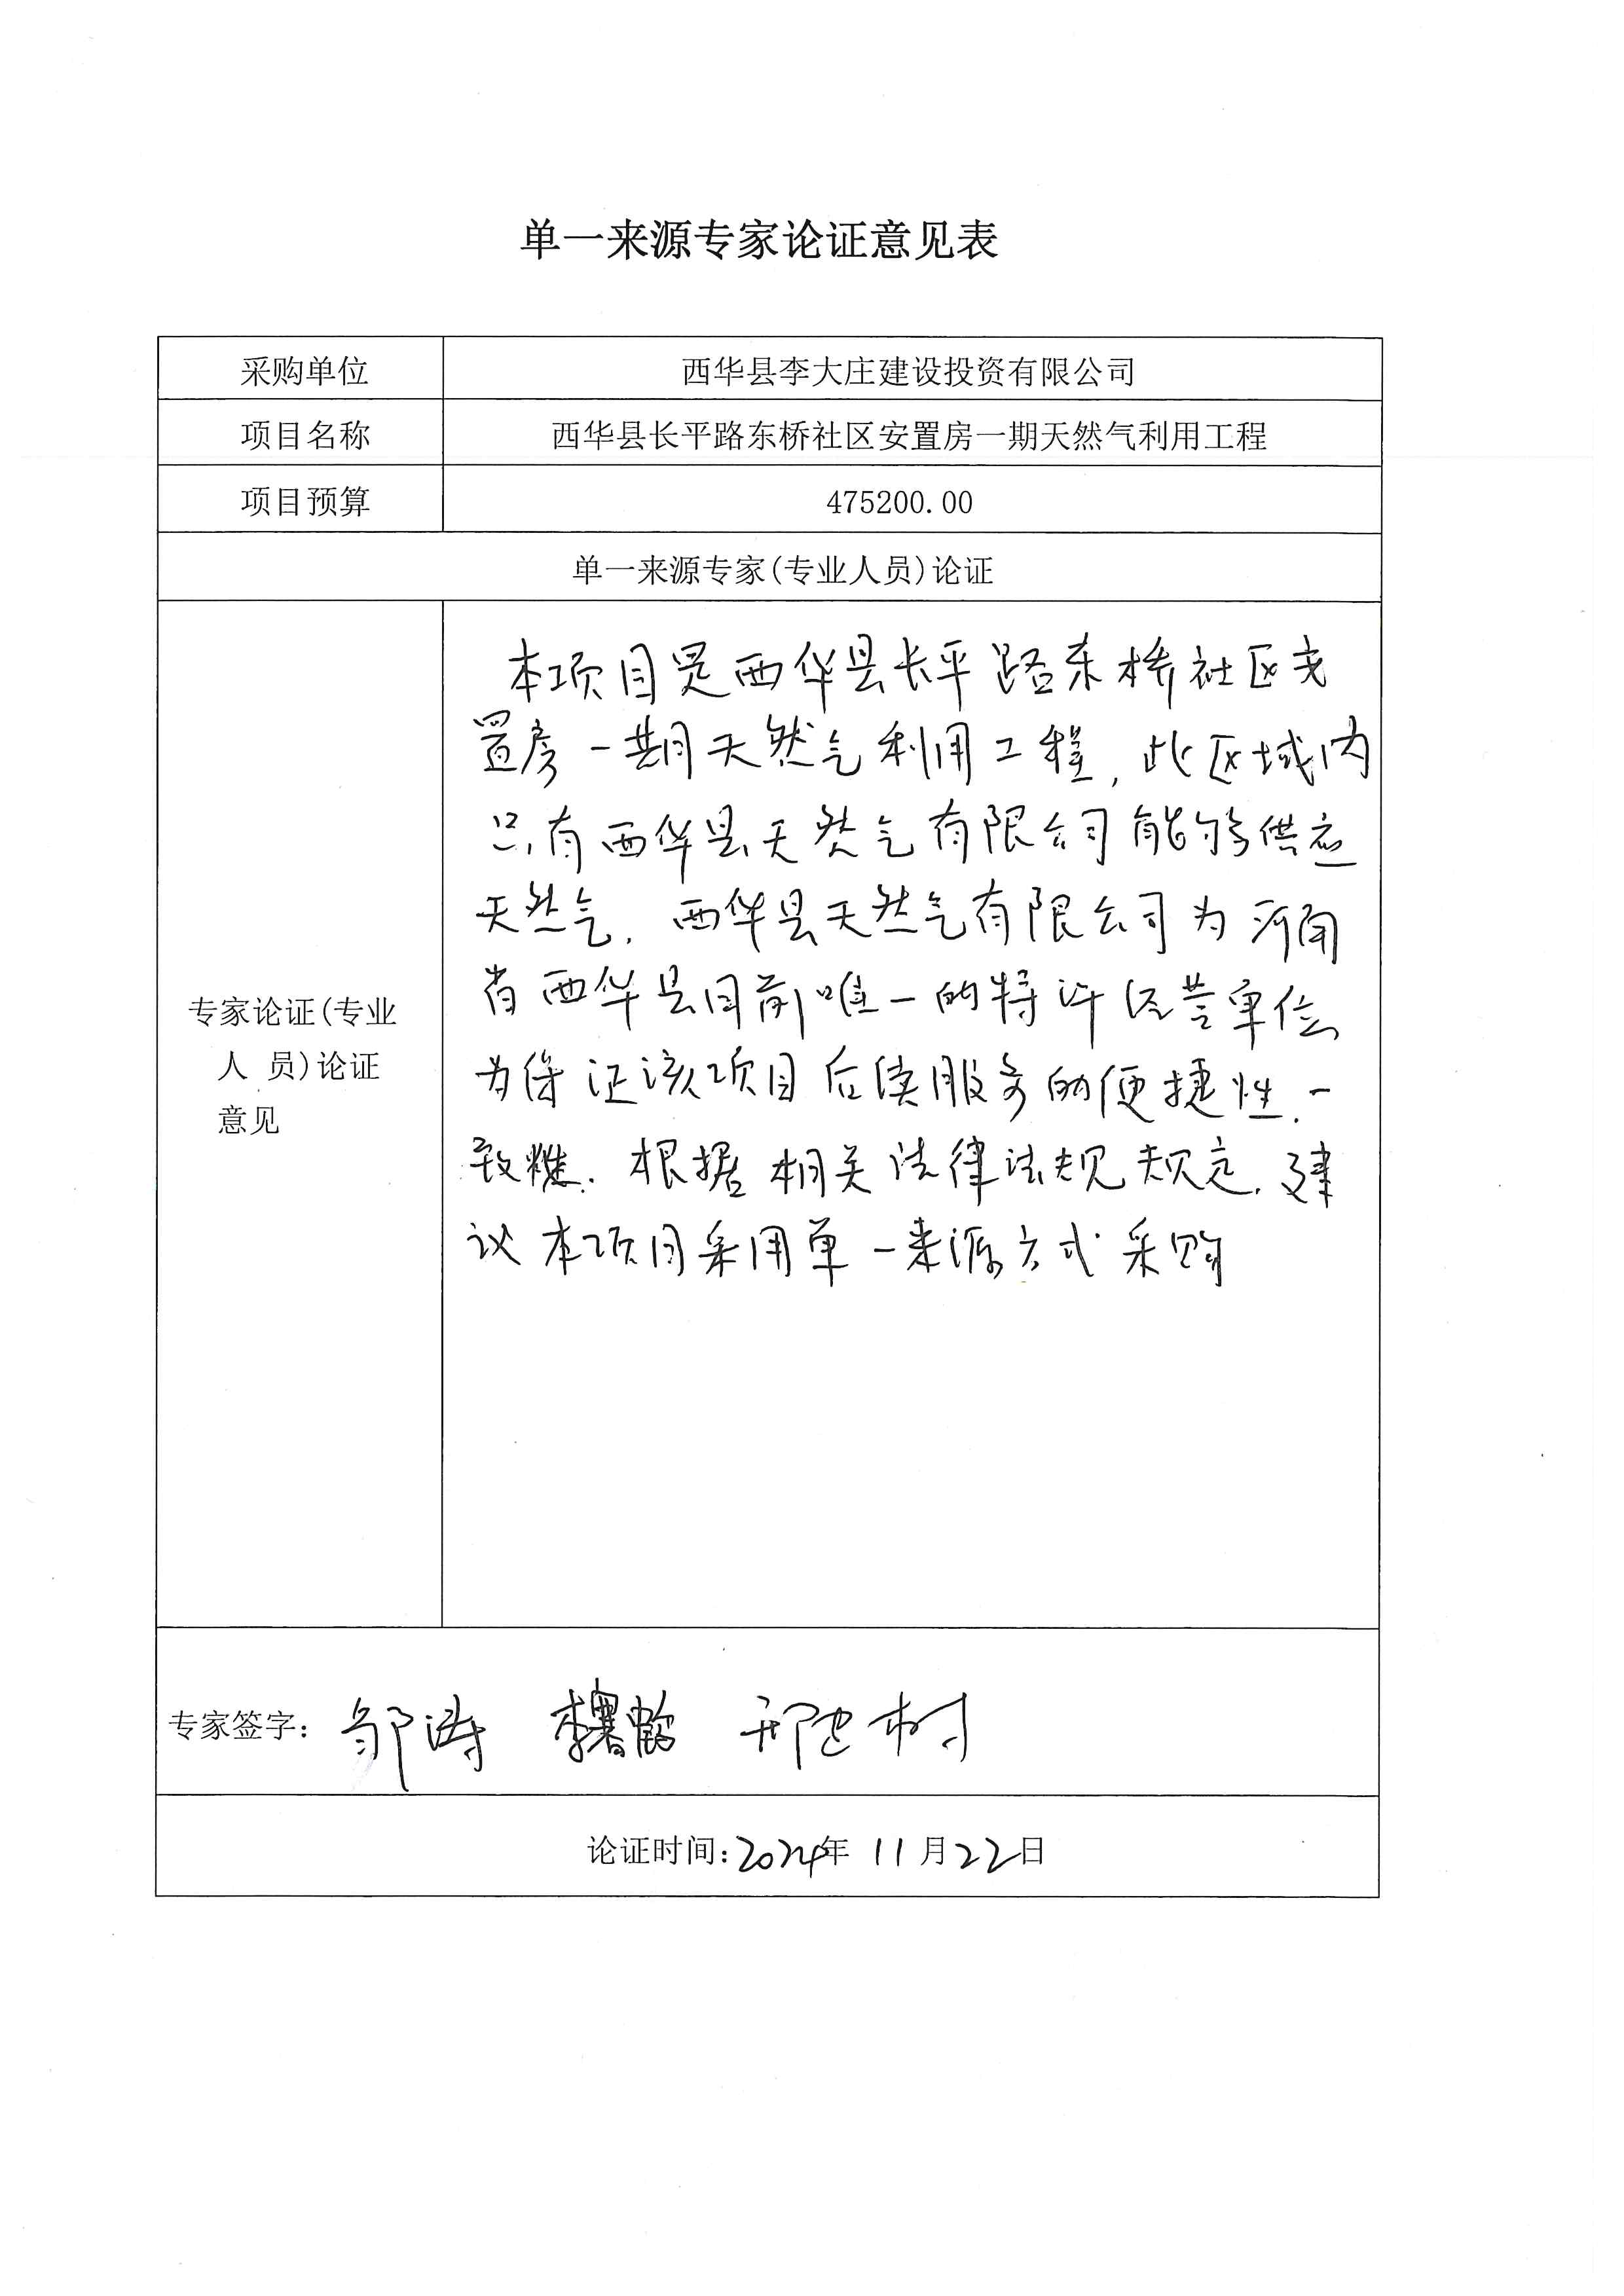 单一来源专家论证意见表
采购单位
西华县李大庄建设投资有限公司
项目名称
西华县长平路东桥社区安置房一期天然气利用工程
项目预算
475200.00
单一来源专家(专业人员)论证
专家论证(专业
人 员)论证
意见
本项目是西华县长平路东桥社区安
置房一期天然气利用工程,此区域内
只有西华县天然气有限公司能够供应
天然气.西华县天然气有限公司为河南
省西华县目前唯一的特许经营单位
为保证该项目后续服务的便捷性.一
致性.根据相关法律法规规定.建
议本项目采用单一来源方式采购
专家签字: 邹涛 邢建树
论证时间:2024年11月22日